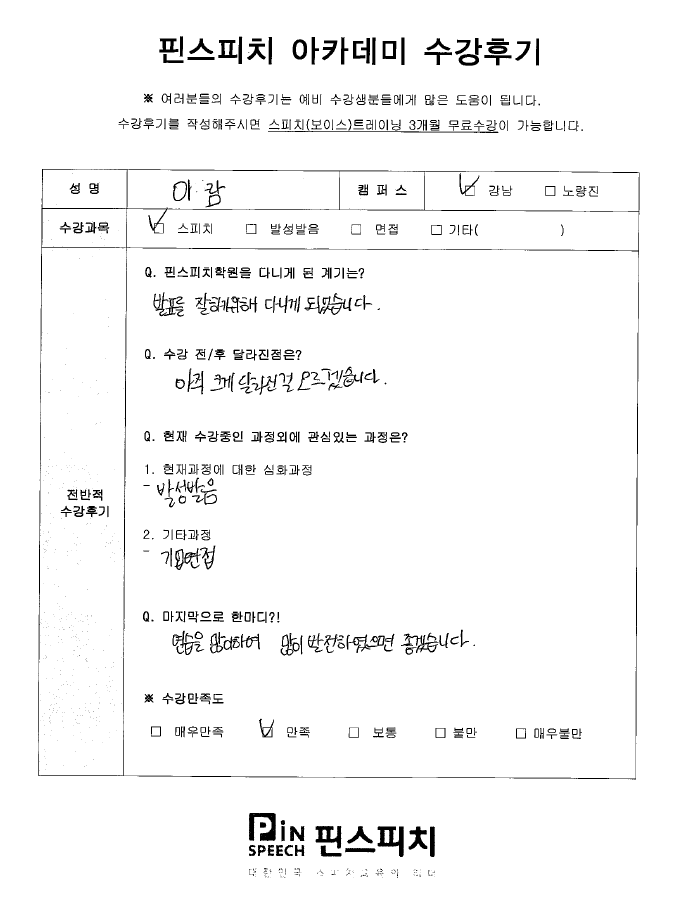 핀스피치 아카데미 수강후기
※ 여러분들의 수강후기는 예비 수강생분들에게 많은 도움이 됩니다.
수강후기를 작성해주시면 스피치(보이스)트레이닝 3개월 무료수강이 가능합니다.
성 명 이 람 캠 퍼 스 ☑ 강남 □ 노량진
수강과목 ☑ 스피치 □ 발성발음 □ 면접 □ 기타( )
Q. 핀스피치학원을 다니게 된 계기는?
발표를 잘하기위해 다니게 되었습니다.
Q. 수강 전/후 달라진점은?
아직 크게 달라진걸 모르겠습니다.
Q. 현재 수강중인 과정외에 관심있는 과정은?
1. 현재과정에 대한 심화과정
- 발성발음
2. 기타과정
- 기업면접
전반적
수강후기
Q. 마지막으로 한마디?!
연습을 많이하여 많이 발전하였으면 좋겠습니다.
※ 수강만족도
□ 매우만족 ☑ 만족 □ 보통 □ 불만 □ 매우불만
PiN SPEECH 핀스피치
대한민국 스피치교육의 리더